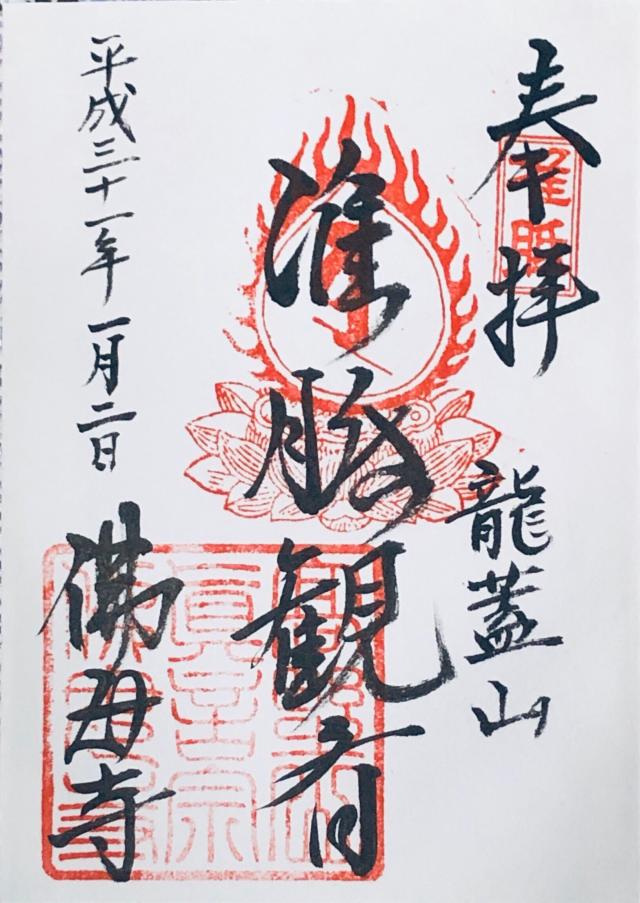 奉拝
准胝
龍蓋山
准胝観音
眞言宗
平成三十一年一月二日
佛母寺